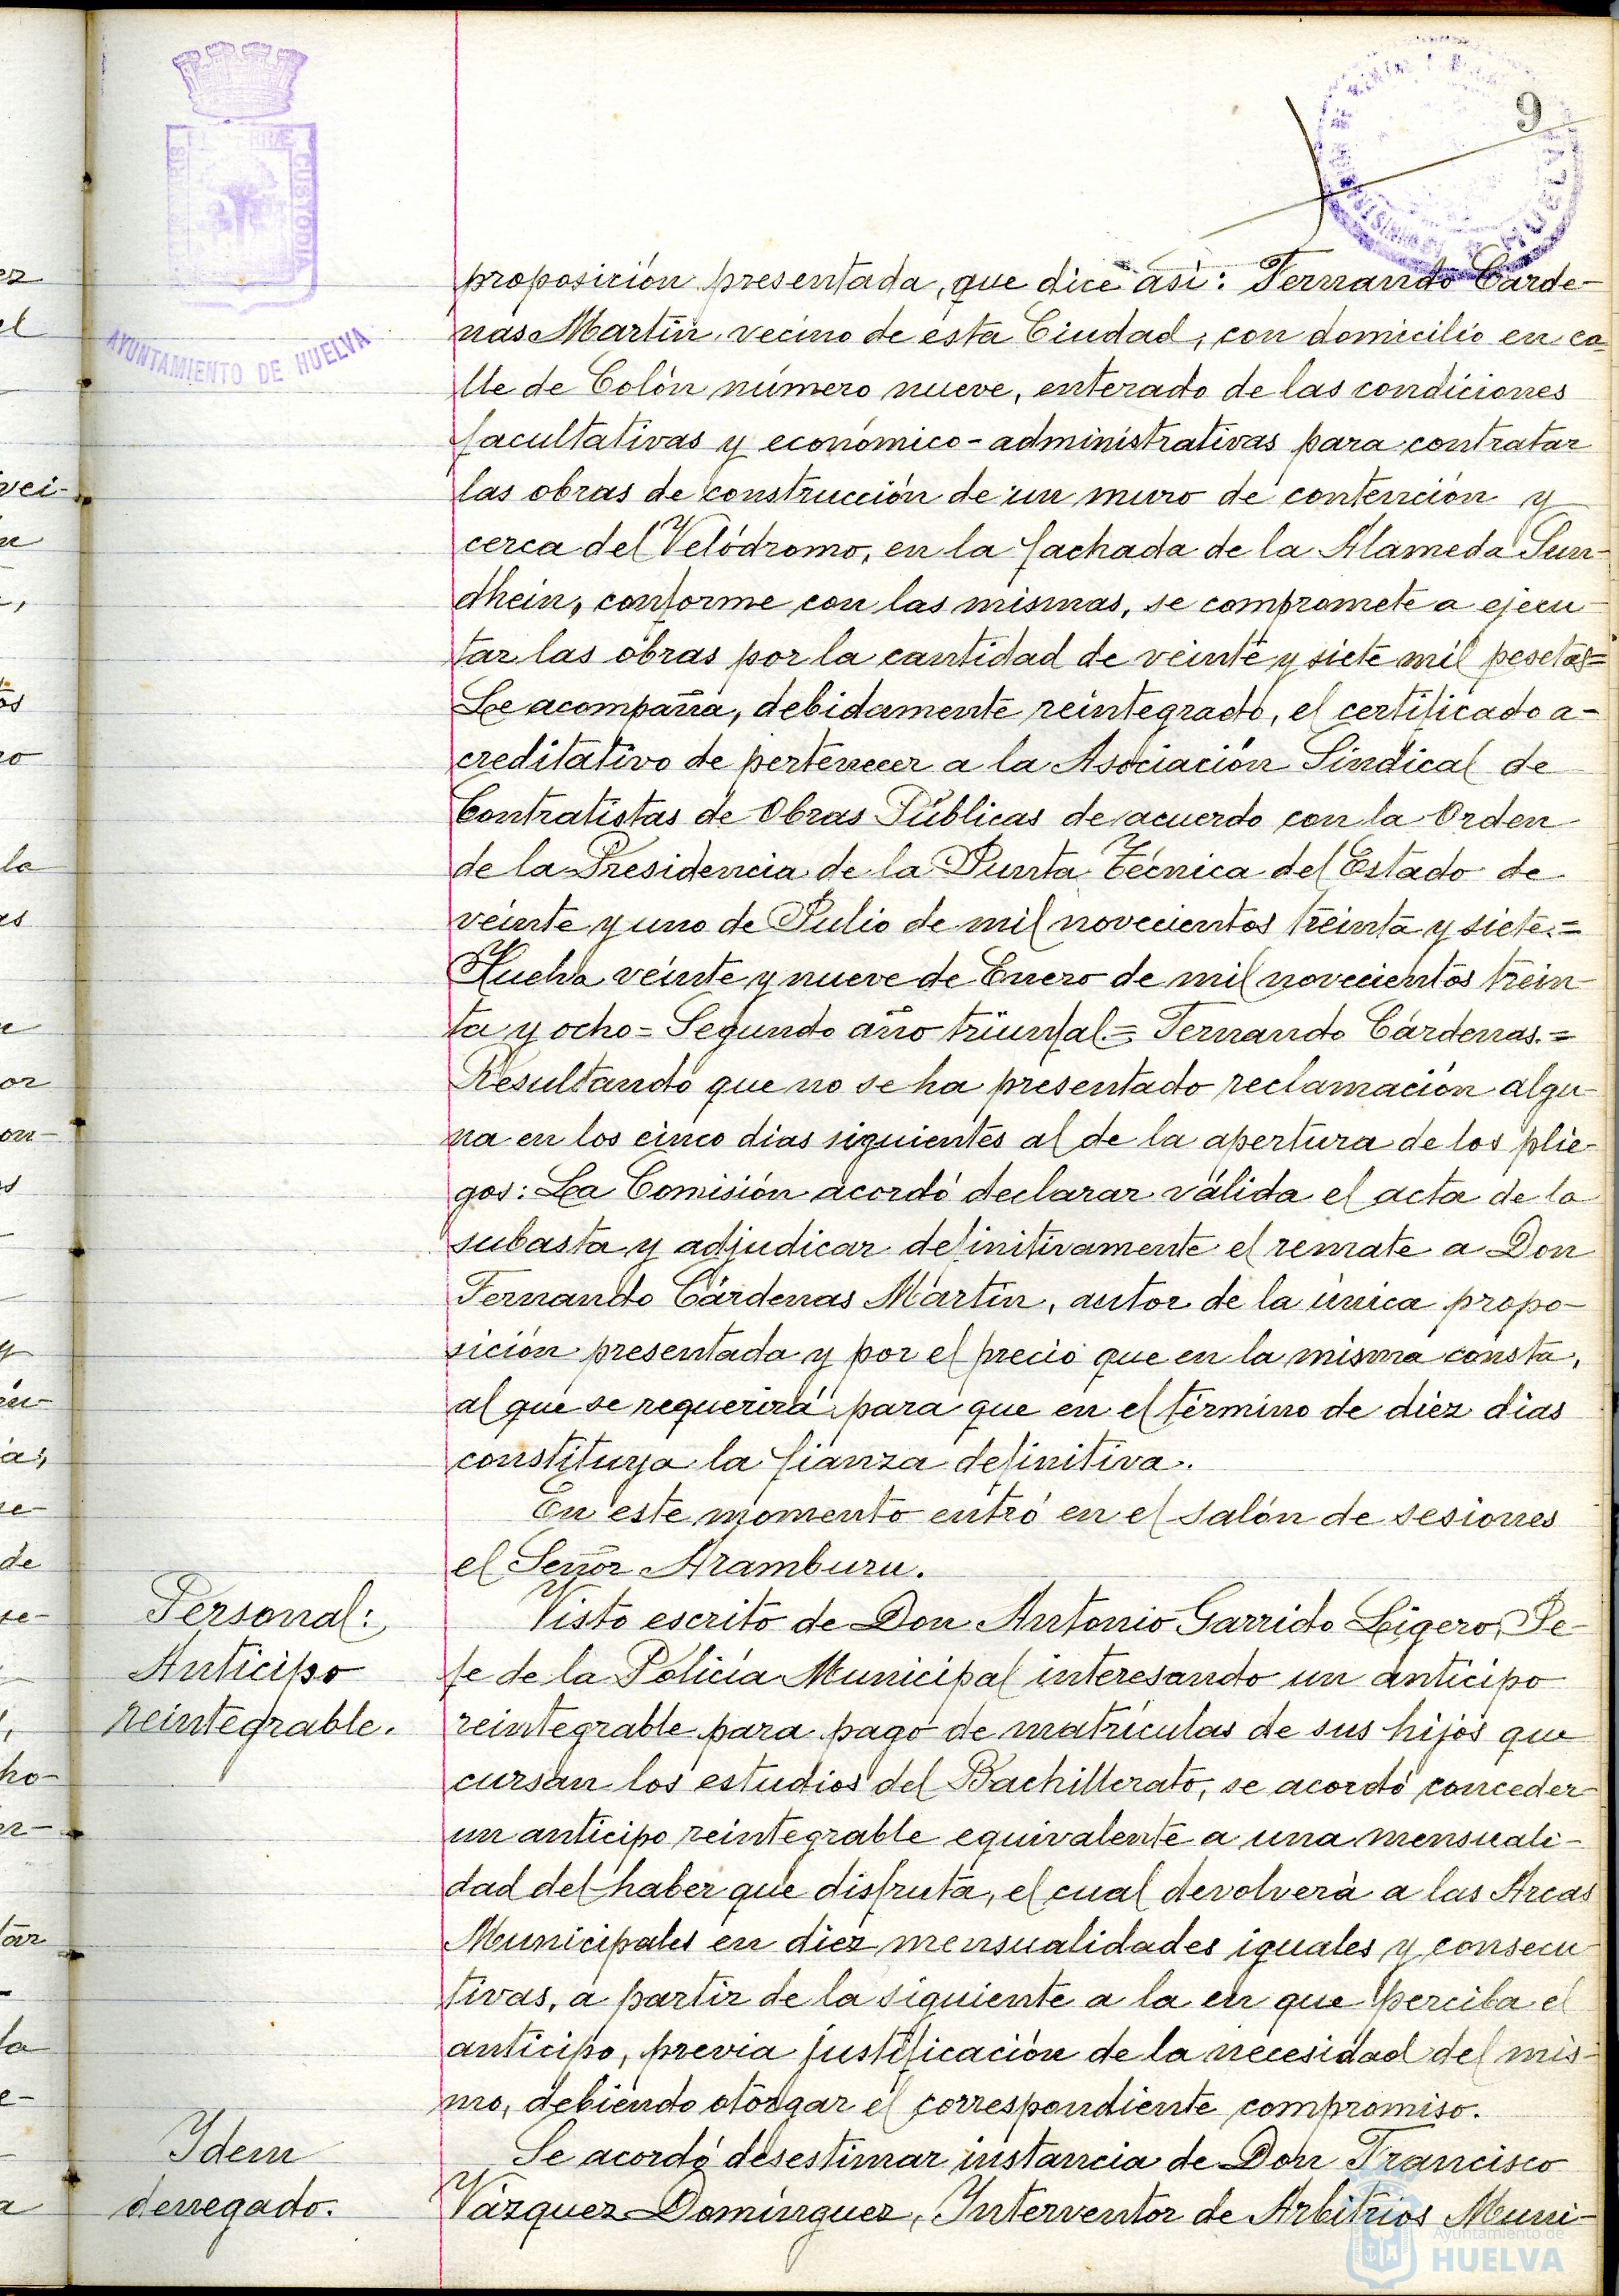 9
AYUNTAMIENTO DE HUELVA
CUSTODIA
HUELVA
proposición presentada, que dice así: Fernando Cárde-
nas Martín, vecino de esta Ciudad, con domicilio en ca-
lle de Colón número nueve, enterado de las condiciones
facultativas y económico-administrativas para contratar
las obras de construcción de un muro de contención y
cerca del Velódromo, en la fachada de la Alameda Sun-
dhein, conforme con las mismas, se compromete a ejecu-
tar las obras por la cantidad de veinte y siete mil pesetas=
Se acompaña, debidamente reintegrado, el certificado a-
creditativo de pertenecer a la Asociación Sindical de
Contratistas de Obras Públicas de acuerdo con la Orden
de la Presidencia de la Junta Técnica del Estado de
veinte y uno de Julio de mil novecientos treinta y siete.=
Huelva veinte y nueve de Enero de mil novecientos trein-
ta y ocho= Segundo año triunfal.= Fernando Cárdenas.=
Resultando que no se ha presentado reclamación algu-
na en los cinco dias siguientes al de la apertura de los plie-
gos: La Comisión acordó declarar válida el acta de la
subasta y adjudicar definitivamente el remate a Don
Fernando Cárdenas Martín, autor de la única propo-
sición presentada y por el precio que en la misma consta,
al que se requerirá para que en el término de diez dias
constituya la fianza definitiva.
En este momento entró en el salón de sesiones
el Señor Aramburu.
Personal:
Anticipo
reintegrable.
Visto escrito de Don Antonio Garrido Ligero, Je-
fe de la Policía Municipal interesando un anticipo
reintegrable para pago de matrículas de sus hijos que
cursan los estudios del Bachillerato, se acordó conceder
un anticipo reintegrable equivalente a una mensuali-
dad del haber que disfruta, el cual devolverá a las Arcas
Municipales en diez mensualidades iguales y consecu-
tivas, a partir de la siguiente a la en que perciba el
anticipo, previa justificación de la necesidad del mis-
mo, debiendo otorgar el correspondiente compromiso.
Idem
denegado.
Se acordó desestimar instancia de Don Francisco
Vázquez Domínguez, Interventor de Arbitrios Muni-
Ayuntamiento de
HUELVA